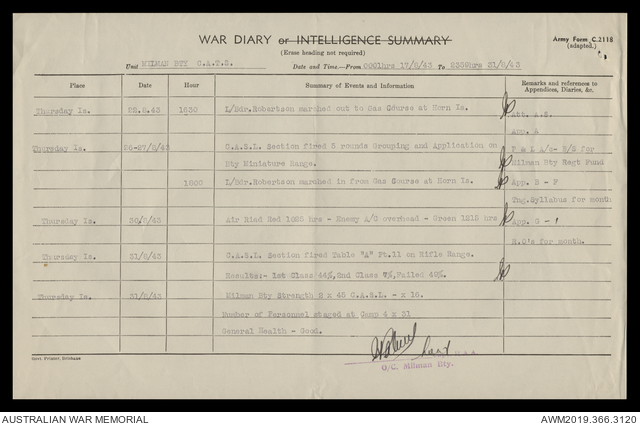 WAR DIARY or INTELLIGENCE SUMMARY
(Erase heading not required)
Army Form C.2118
(adapted.)
Unit MILMAN BTY C.A.T.S. Date and Time.—From 0001hrs 17/8/43 To 2359hrs 31/8/43
Place Date Hour Summary of Events and Information Remarks and references to
Appendices, Diaries, &c.
Thursday Is. 22.8.43 1630 L/Bdr.Robertson marched out to Gas Course at Horn Is.
App. A
Thursday Is. 26-27/8/43 C.A.S.L. Section fired 5 rounds Grouping and Application on P & L A/c- B/S for
Bty Miniature Range. Milman Bty Regt Fund
1800 L/Bdr.Robertson marched in from Gas Course at Horn Is. App. B - F
Tng.Syllabus for month
Thursday Is. 30/8/43 Air Riad Red 1025 hrs - Enemy A/C overhead - Green 1215 hrs App. G -
R.O's for month.
Thursday Is. 31/8/43 C.A.S.L. Section fired Table "A" Pt.11 on Rifle Range.
Results:- 1st Class 44%, 2nd Class %, Failed 40%.
Thursday Is. 31/8/43 Milman Bty Strength 2 x 45 C.A.S.L. - x 16.
Number of Personnel staged at Camp 4 x 31
General Health - Good.
Capt
O/C. Milman Bty.
Govt. Printer, Brisbane
AUSTRALIAN WAR MEMORIAL
AWM2019.366.3120